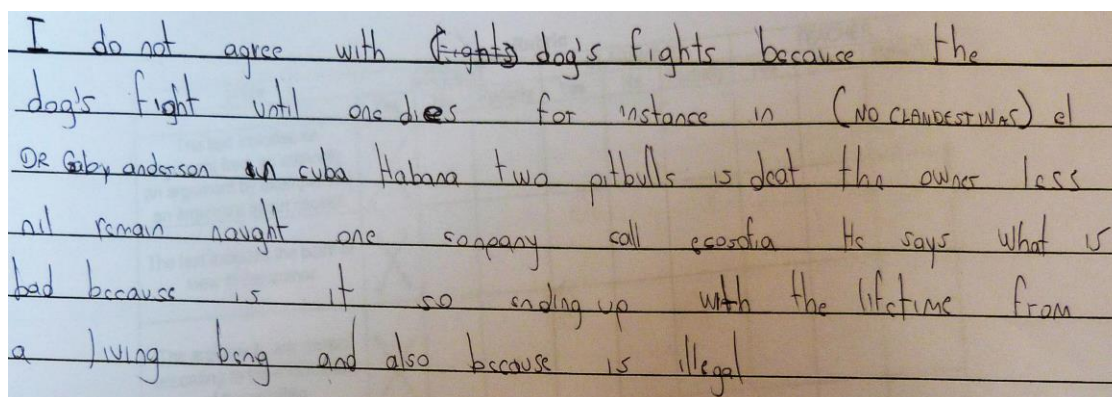 I do not agree with dog's fights because the
dog's fight until one dies for instance in (NO CLANDESTINAS) el
DR Gaby anderson un cuba Habana two pitbulls is deat the owner less
nil remain nought one conpany call ecosofia He says what is
bad because is it so ending up with the lifetime from
a living beng and also because is illegal